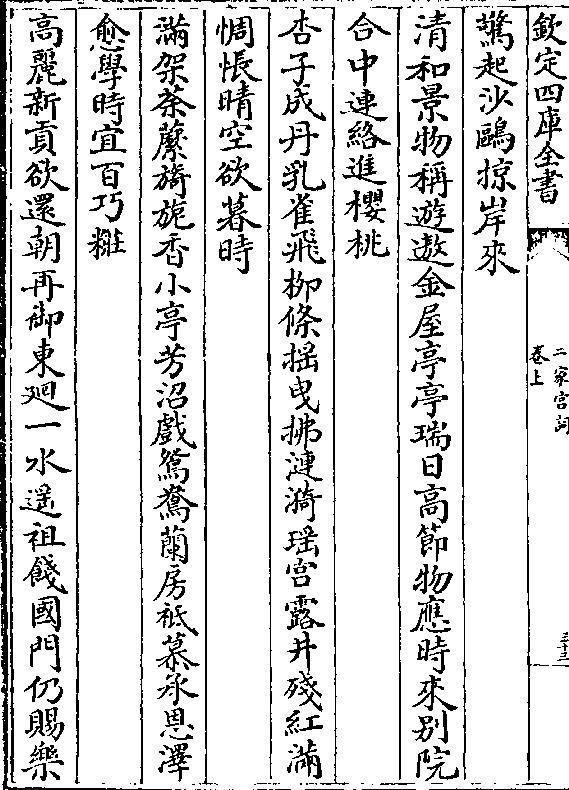 欽定四庫全書
二家宮詞
卷上
三十三
驚起沙鷗掠岸來
清和景物稱遊遨金屋亭亭瑞日高節物應時來别院
合中連絡進櫻桃
杏子成丹乳雀飛栁條揺曳拂漣漪瑶宫露井殘紅滿
惆悵晴空欲暮時
滿架荼䕷旖旎香小亭芳沼戲鴛鴦蘭房祗慕承恩澤
愈學時宜百巧粧
高麗新貢欲還朝再御東廻一水遥祖餞國門仍賜樂